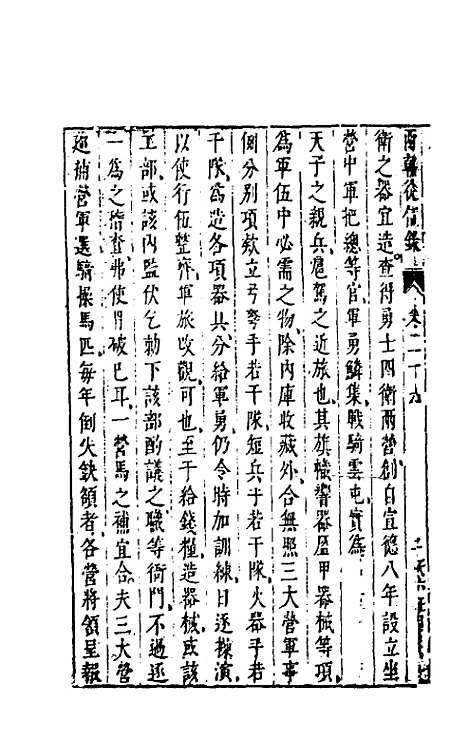 兩朝從信錄 卷二十九
衛之器宜造查得勇士四衛兩營創自宣德八年設立坐
營中軍把總等官軍勇鱗集戰騎雲屯實為
天子之親兵扈駕之近旅也其旗幟響器盔甲器械等項
為軍伍中必需之物除內庫收藏外合無照三大營軍事
例分別項欵立弓弩手若干隊短兵手若干隊火器手若
干隊為造各項器具分給軍勇仍令時加訓練日逐操演
以使行伍整齊軍旅改觀可也至于給錢糧造器械或該
工部或該內監伏乞勅下該部酌議之職等衙門不過逐
一為之稽查弗使冒破已耳一營馬之補宜合夫三大營
迎補營軍選騎操馬匹每年倒火缺領者各營將領呈報